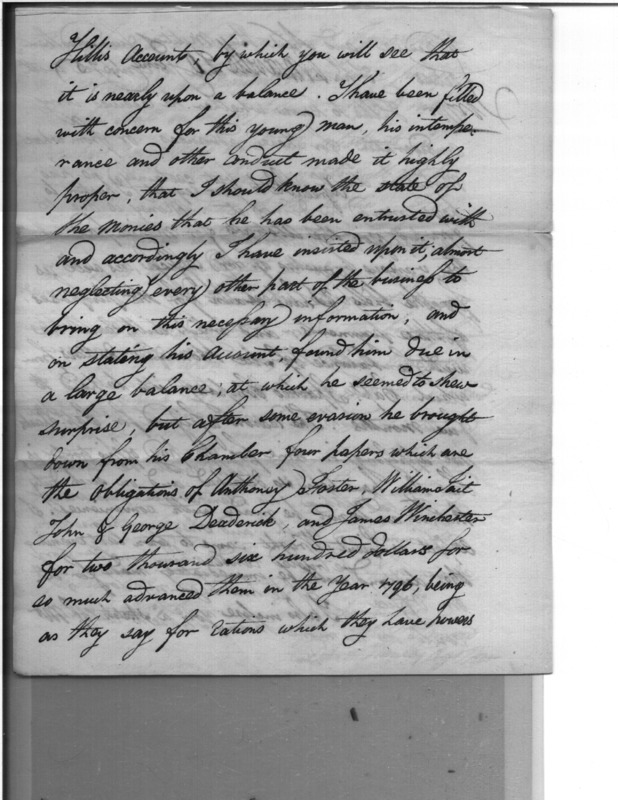 Hillis Account, by which you will see that
it is nearly upon a balance. I have been filled
with concern for this young man, his intempe-
rance and other conduct made it highly
proper, that I should know the state of
the monies that he has been entrusted with
and accordingly I have insisted upon it, almost
neglecting every other part of the business to
bring on this necessary information, and
on stating his account, found him due in
a large balance; at which he seemed to shew
surprise, but after some evasion he brought
down from his Chamber four papers which are
the obligations of Anthoney Foster, William Tait
John & George Deaderick, and James Winchester
for two thousand six hundred dollars for
so much advanced them in the Year 1796, being
as they say for rations which they have powers